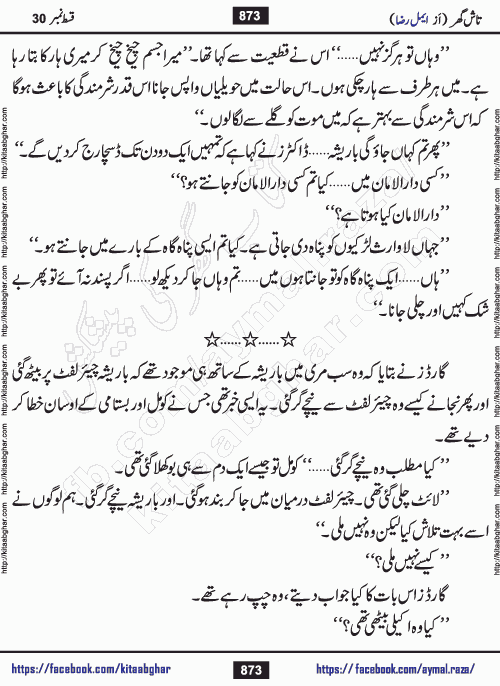 تاش گھر (از ایمل رضا) 873 قسط نمبر 30
’’وہاں تو ہرگز نہیں......‘‘ اس نے قطعیت سے کہا تھا۔ ’’میرا جسم چیخ چیخ کر میری ہار کا بتا رہا
ہے۔ میں ہر طرف سے ہار چکی ہوں۔ اس حالت میں حویلیاں واپس جانا اس قدر شرمندگی کا باعث ہوگا
کہ اس شرمندگی سے بہتر ہے کہ میں موت کو گلے سے لگا لوں۔‘‘
’’پھر تم کہاں جاؤ گی باریشہ......ڈاکٹرز نے کہا ہے کہ تمہیں ایک دو دن تک ڈسچارج کر دیں گے۔‘‘
’’کسی دارالامان میں......کیا تم کسی دارالامان کو جانتے ہو؟‘‘
’’دارالامان کیا ہوتا ہے؟‘‘
’’جہاں لاوارث لڑکیوں کو پناہ دی جاتی ہے۔ کیا تم ایسی پناہ گاہ کے بارے میں جانتے ہو۔‘‘
’’ہاں......ایک پناہ گاہ کو تو جانتا ہوں میں......تم وہاں جا کر دیکھ لو......اگر پسند نہ آئے تو پھر بے
شک کہیں اور چلی جانا۔‘‘
☆......☆......☆
گارڈز نے بتایا کہ وہ سب مری میں باریشہ کے ساتھ ہی موجود تھے کہ باریشہ چیئر لفٹ پر بیٹھ گئی
اور پھر نجانے کیسے وہ چیئر لفٹ سے نیچے گر گئی۔ یہ ایسی خبر تھی جس نے کومل اور بستامی کے اوسان خطا کر
دیے تھے۔
’’کیا مطلب وہ نیچے گر گئی......‘‘ کومل تو جیسے ایک دم سے ہی بوکھلا گئی تھی۔
’’لائٹ چلی گئی تھی۔ چیئر لفٹ درمیان میں جا کر بند ہو گئی۔ اور باریشہ نیچے گر گئی۔ ہم لوگوں نے
اسے بہت تلاش کیا لیکن وہ نہیں ملی۔‘‘
’’کیسے نہیں ملی؟‘‘
گارڈز اس بات کا کیا جواب دیتے، وہ چپ رہے تھے۔
’’کیا وہ اکیلی بیٹھی تھی؟‘‘
https://facebook.com/kitaabghar 873 https://facebook.com/aymal.raza/
http://kitaabghar.com http://kitaabghar.com http://kitaabghar.com http://kitaabghar.com http://kitaabghar.com http://kitaabghar.com
fb.com/aymal.raza
kitaabghar.com